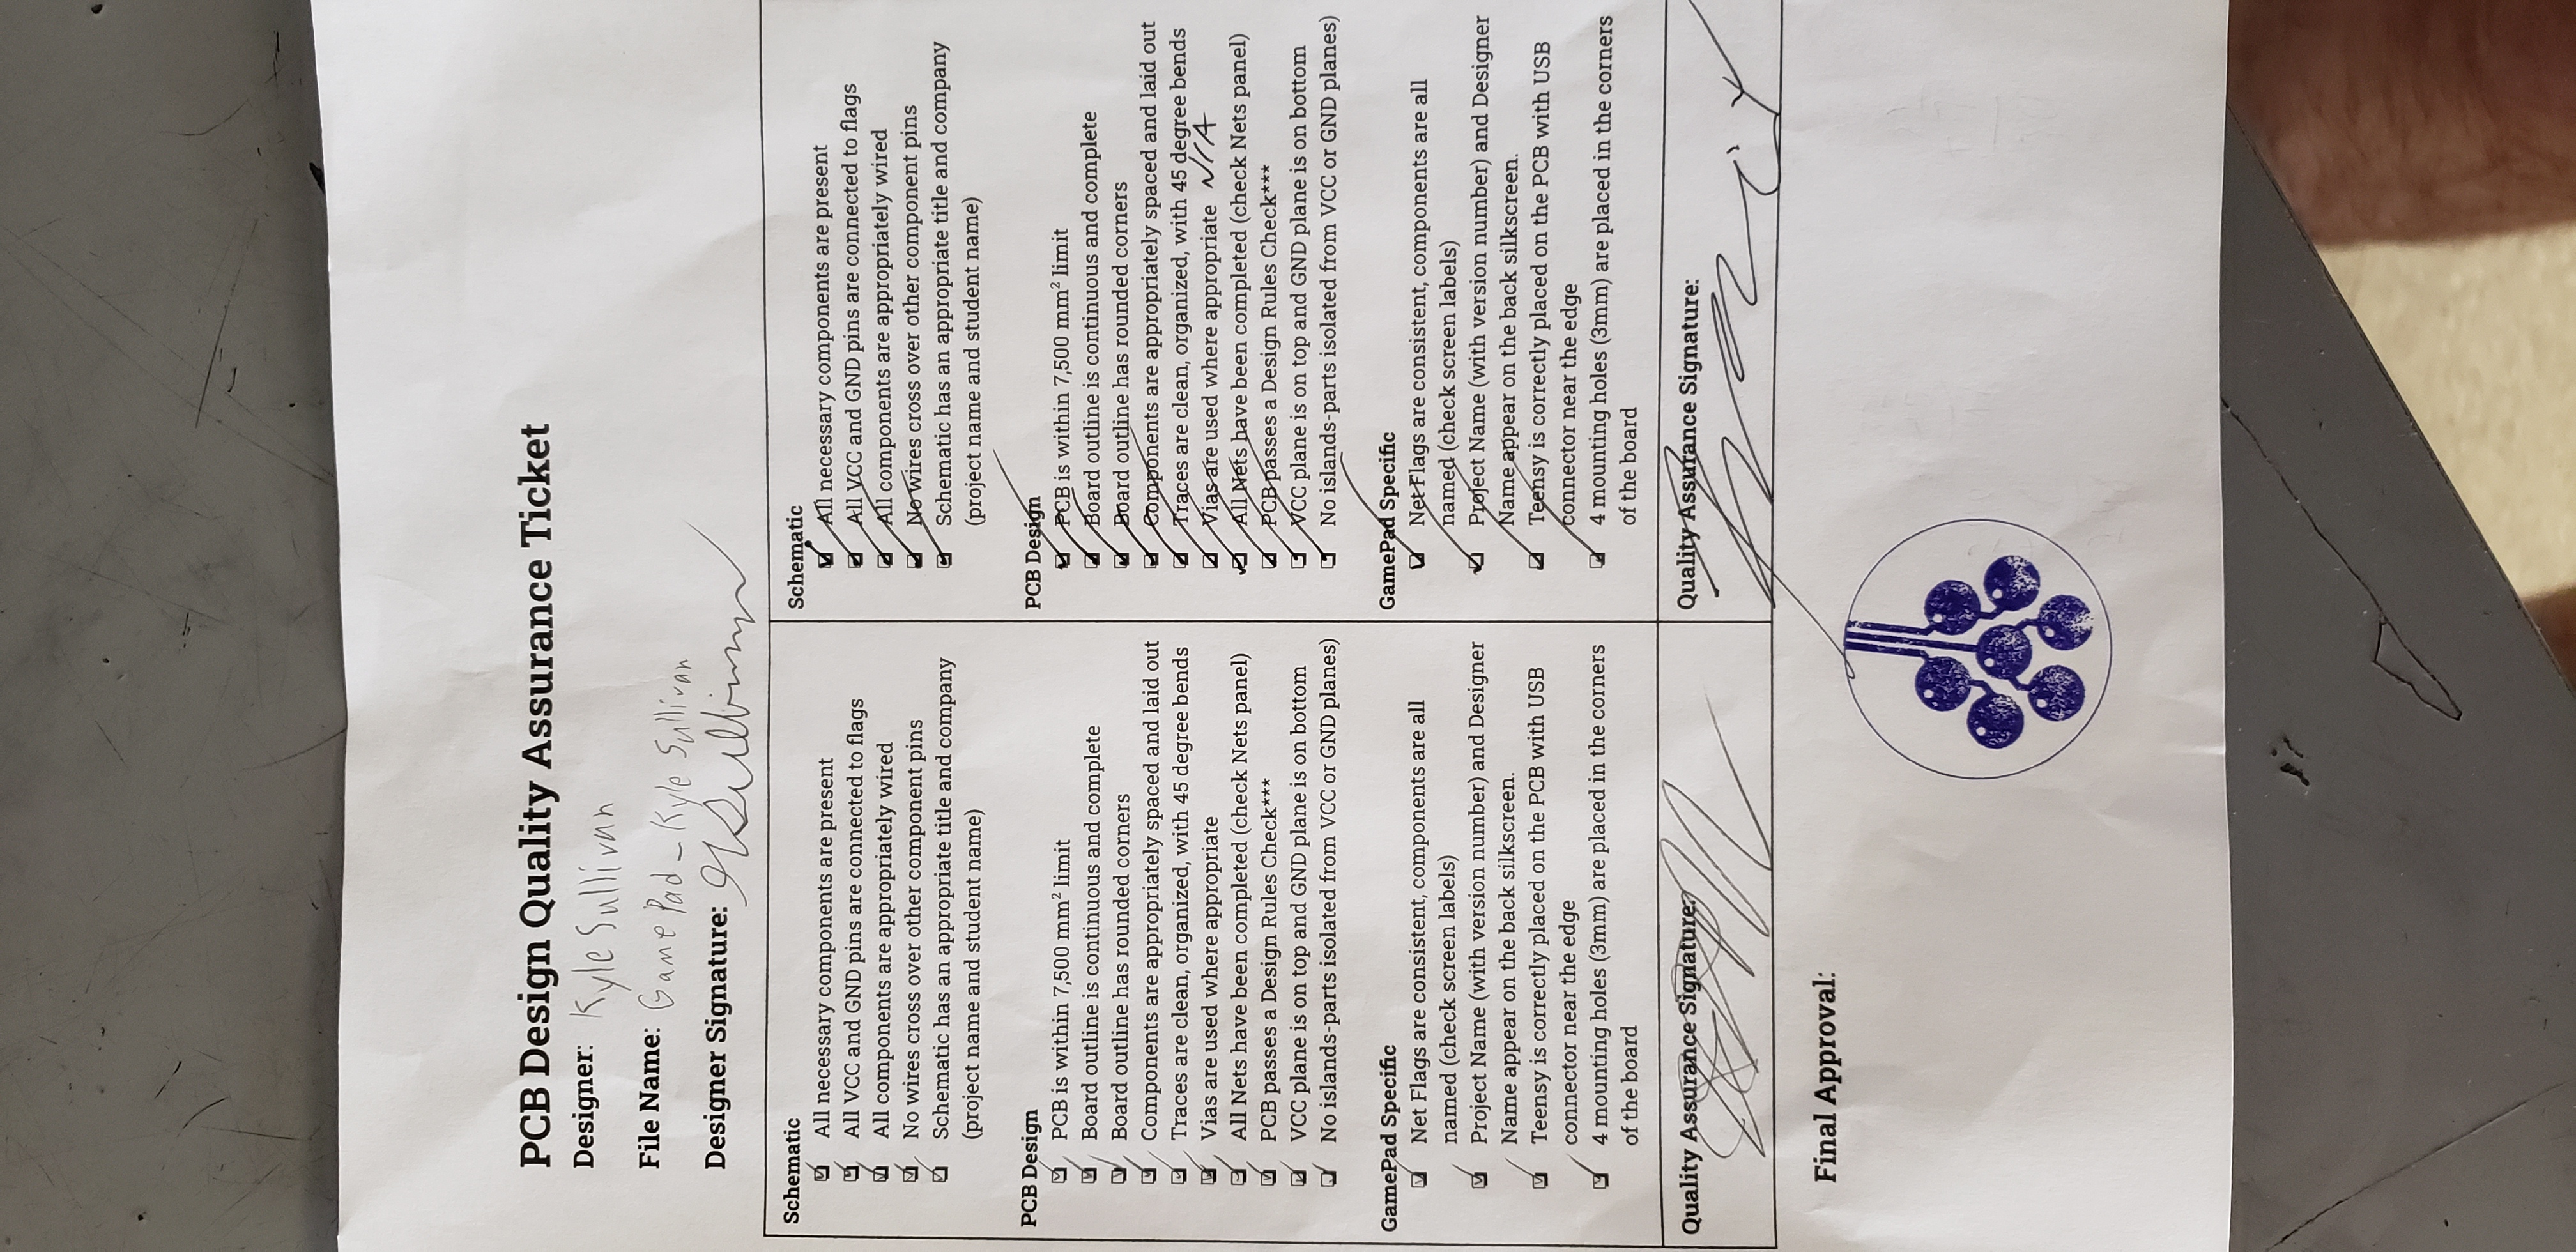 PCB Design Quality Assurance Ticket
Designer: Kyle Sullivan
File Name: GamePad - Kyle Sullivan
Designer Signature:
Schematic
All necessary components are present
All VCC and GND pins are connected to flags
All components are appropriately wired
No wires cross over other component pins
Schematic has an appropriate title and company
(project name and student name)
PCB Design
PCB is within 7,500 mm² limit
Board outline is continuous and complete
Board outline has rounded corners
Components are appropriately spaced and laid out
Traces are clean, organized, with 45 degree bends
Vias are used where appropriate
All Nets have been completed (check Nets panel)
PCB passes a Design Rules Check***
VCC plane is on top and GND plane is on bottom
No islands-parts isolated from VCC or GND planes)
GamePad Specific
Net Flags are consistent, components are all
named (check screen labels)
Project Name (with version number) and Designer
Name appear on the back silkscreen.
Teensy is correctly placed on the PCB with USB
connector near the edge
4 mounting holes (3mm) are placed in the corners
of the board
Quality Assurance Signature:
Schematic
All necessary components are present
All VCC and GND pins are connected to flags
All components are appropriately wired
No wires cross over other component pins
Schematic has an appropriate title and company
(project name and student name)
PCB Design
PCB is within 7,500 mm² limit
Board outline is continuous and complete
Board outline has rounded corners
Components are appropriately spaced and laid out
Traces are clean, organized, with 45 degree bends
Vias are used where appropriate N/A
All Nets have been completed (check Nets panel)
PCB passes a Design Rules Check***
VCC plane is on top and GND plane is on bottom
No islands-parts isolated from VCC or GND planes)
GamePad Specific
Net Flags are consistent, components are all
named (check screen labels)
Project Name (with version number) and Designer
Name appear on the back silkscreen.
Teensy is correctly placed on the PCB with USB
connector near the edge
4 mounting holes (3mm) are placed in the corners
of the board
Quality Assurance Signature:
Final Approval: